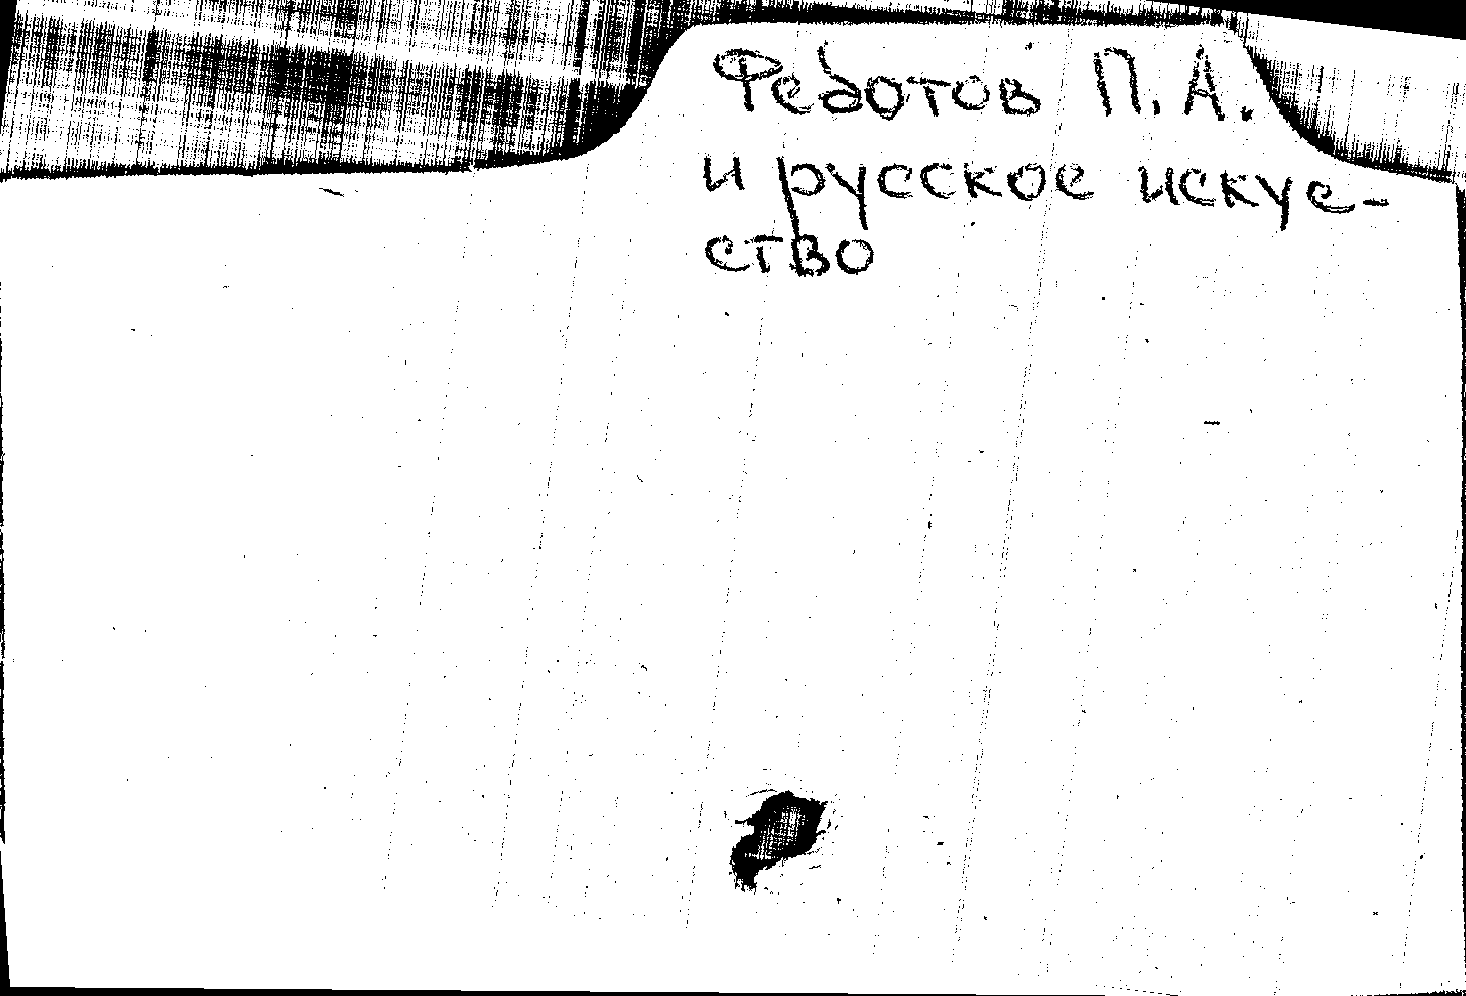 Федотов П. А.
и русское искус-
ство